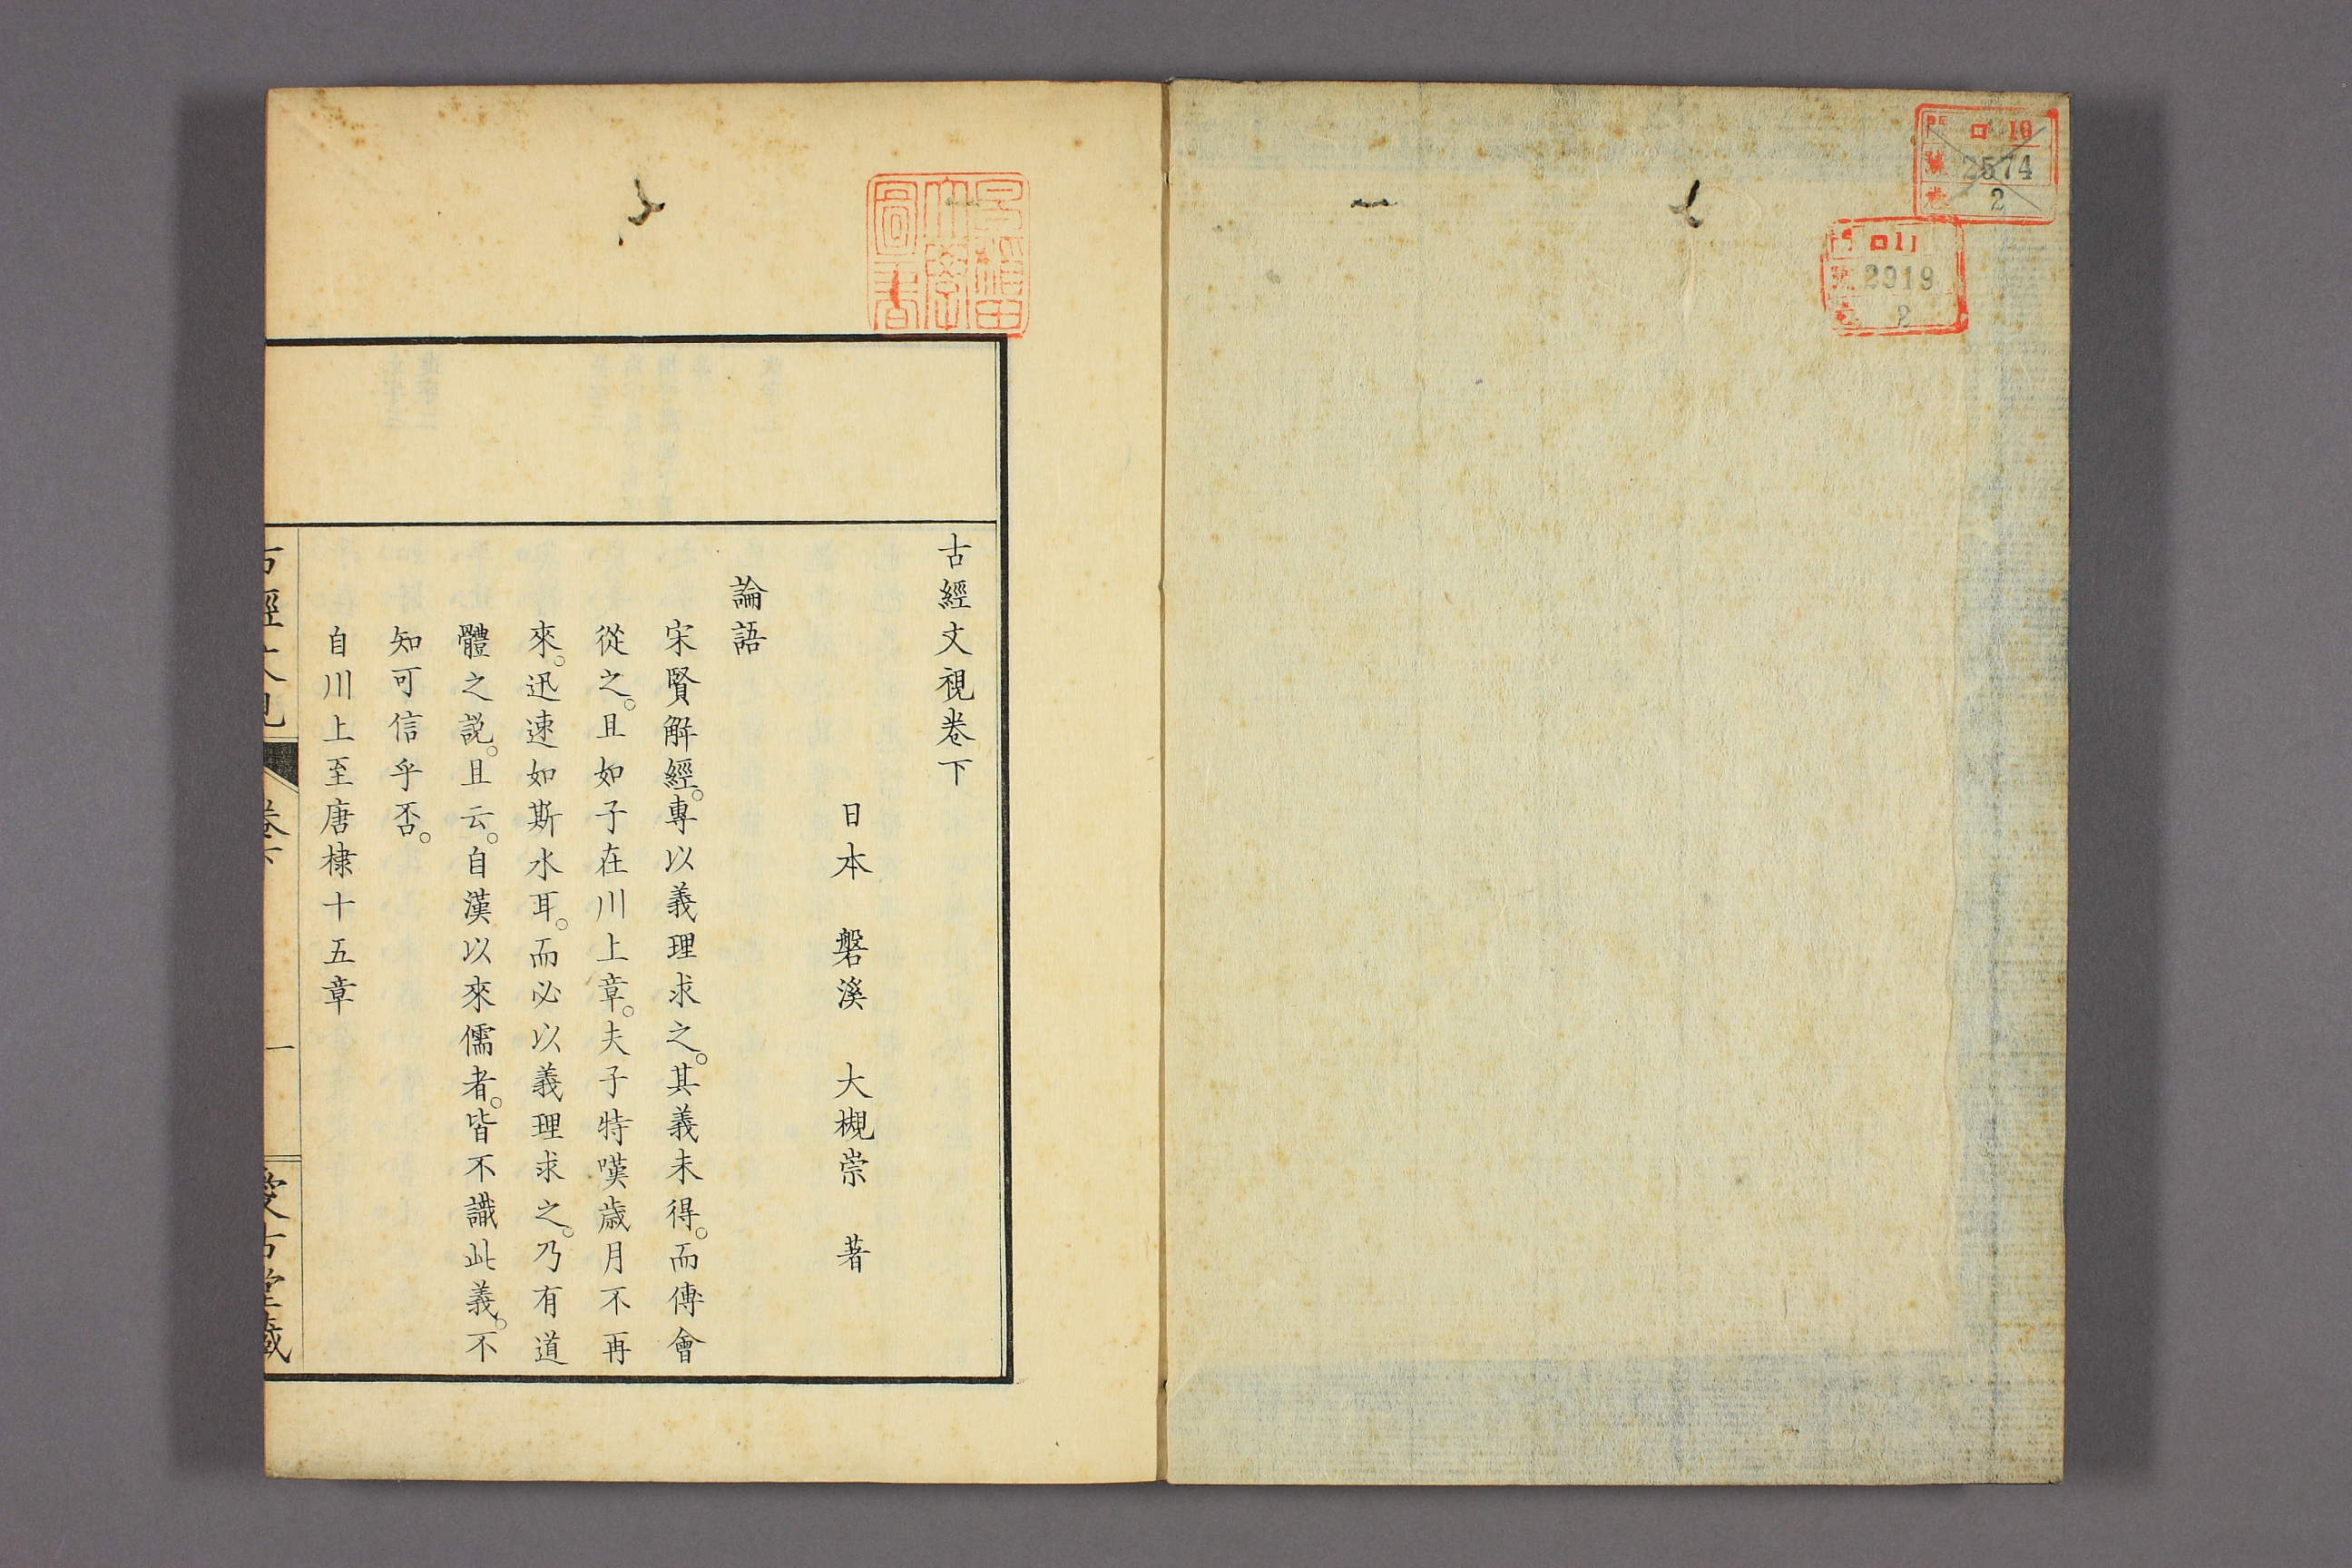 ロ 10
號 2574
卷 2
門 ロ11
號 2919
2
早稲田
大學
圖書
古經文視卷下
日本 磐溪 大槻崇 著
論語
宋賢解經。專以義理求之。其義未得。而傅會
從之。且如子在川上章。夫子特嘆歳月不再
來。迅速如斯水耳。而必以義理求之。乃有道
體之説。且云。自漢以來儒者。皆不識此義。不
知可信乎否。
自川上至唐棣十五章
古經文視
卷下
一
愛古堂藏